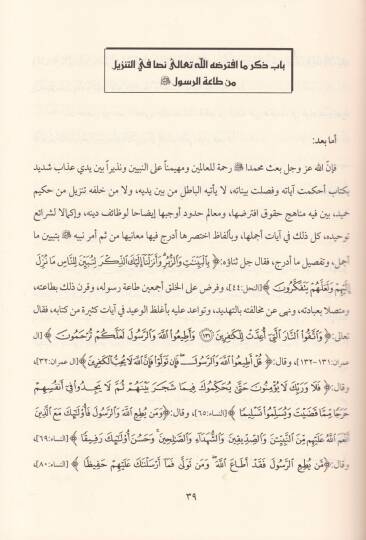 باب ذكر ما افترضه الله تعالى نصا في التنزيل
من طاعة الرسول ﷺ
أما بعد:
فإنّ الله عز وجل بعث محمدا ﷺ رحمة للعالمين ومهيمناً على النبيين ونذيراً بين يدي عذاب شديد
بكتاب أحكمت آياته وفصلت بيناته، لا يأتيه الباطل من بين يديه، ولا من خلفه تنزيل من حكيم
حميد، بين فيه مناهج حقوق افترضها، ومعالم حدود أوجبها إيضاحا لوظائف دينه، وإكمالا لشرائع
توحيده، كل ذلك في آيات أجملها، وبألفاظ اختصرها أدرج فيها معانيها ثم أمر نبيه ﷺ بتبيين ما
أجمل، وتفصيل ما أدرج، فقال جل ثناؤه: ﴿بِالْبَيِّنَاتِ وَالزُّبُرِ وَأَنزَلْنَا إِلَيْكَ الذِّكْرَ لِتُبَيِّنَ لِلنَّاسِ مَا نُزِّلَ
إِلَيْهِمْ وَلَعَلَّهُمْ يَتَفَكَّرُونَ﴾ [النحل:٤٤]، وفرض على الخلق أجمعين طاعة رسوله، وقرن ذلك بطاعته،
ومتصلا بعبادته، ونهى عن مخالفته بالتهديد، وتواعد عليه بأغلظ الوعيد في آيات كثيرة من كتابه، فقال
تعالى: ﴿وَاتَّقُوا النَّارَ الَّتِي أُعِدَّتْ لِلْكَافِرِينَ ﴿١٣١﴾ وَأَطِيعُوا اللَّهَ وَالرَّسُولَ لَعَلَّكُمْ تُرْحَمُونَ﴾ [آل
عمران:١٣١-١٣٢]، وقال: ﴿قُلْ أَطِيعُوا اللَّهَ وَالرَّسُولَ ۖ فَإِن تَوَلَّوْا فَإِنَّ اللَّهَ لَا يُحِبُّ الْكَافِرِينَ﴾ [آل عمران:٣٢]،
وقال: ﴿فَلَا وَرَبِّكَ لَا يُؤْمِنُونَ حَتَّىٰ يُحَكِّمُوكَ فِيمَا شَجَرَ بَيْنَهُمْ ثُمَّ لَا يَجِدُوا فِي أَنفُسِهِمْ
حَرَجًا مِّمَّا قَضَيْتَ وَيُسَلِّمُوا تَسْلِيمًا﴾ [النساء:٦٥]، وقال: ﴿وَمَن يُطِعِ اللَّهَ وَالرَّسُولَ فَأُولَٰئِكَ مَعَ الَّذِينَ
أَنْعَمَ اللَّهُ عَلَيْهِم مِّنَ النَّبِيِّينَ وَالصِّدِّيقِينَ وَالشُّهَدَاءِ وَالصَّالِحِينَ ۚ وَحَسُنَ أُولَٰئِكَ رَفِيقًا﴾ [النساء:٦٩]،
وقال: ﴿مَّن يُطِعِ الرَّسُولَ فَقَدْ أَطَاعَ اللَّهَ ۖ وَمَن تَوَلَّىٰ فَمَا أَرْسَلْنَاكَ عَلَيْهِمْ حَفِيظًا﴾ [النساء:٨٠]،
٣٩